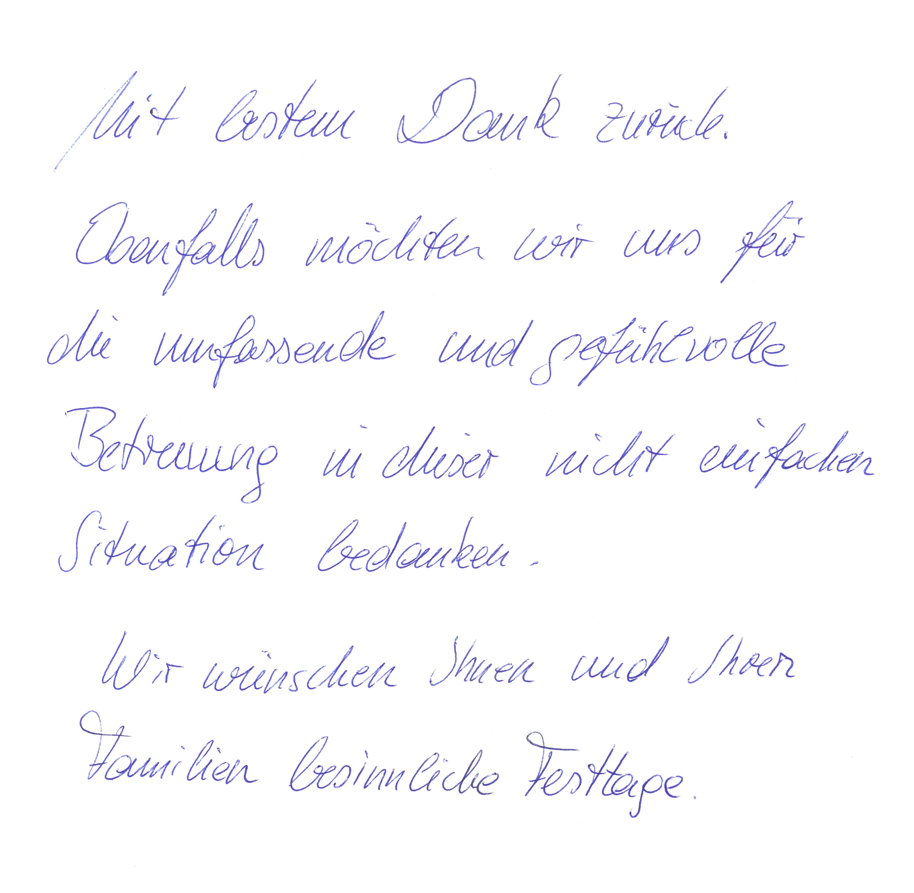 Mit bestem Dank zurück.
Ebenfalls möchten wir uns für
die umfassende und gefühlvolle
Betreuung in dieser nicht einfachen
Situation bedanken.
Wir wünschen Ihnen und Ihren
Familien besinnliche Festtage.